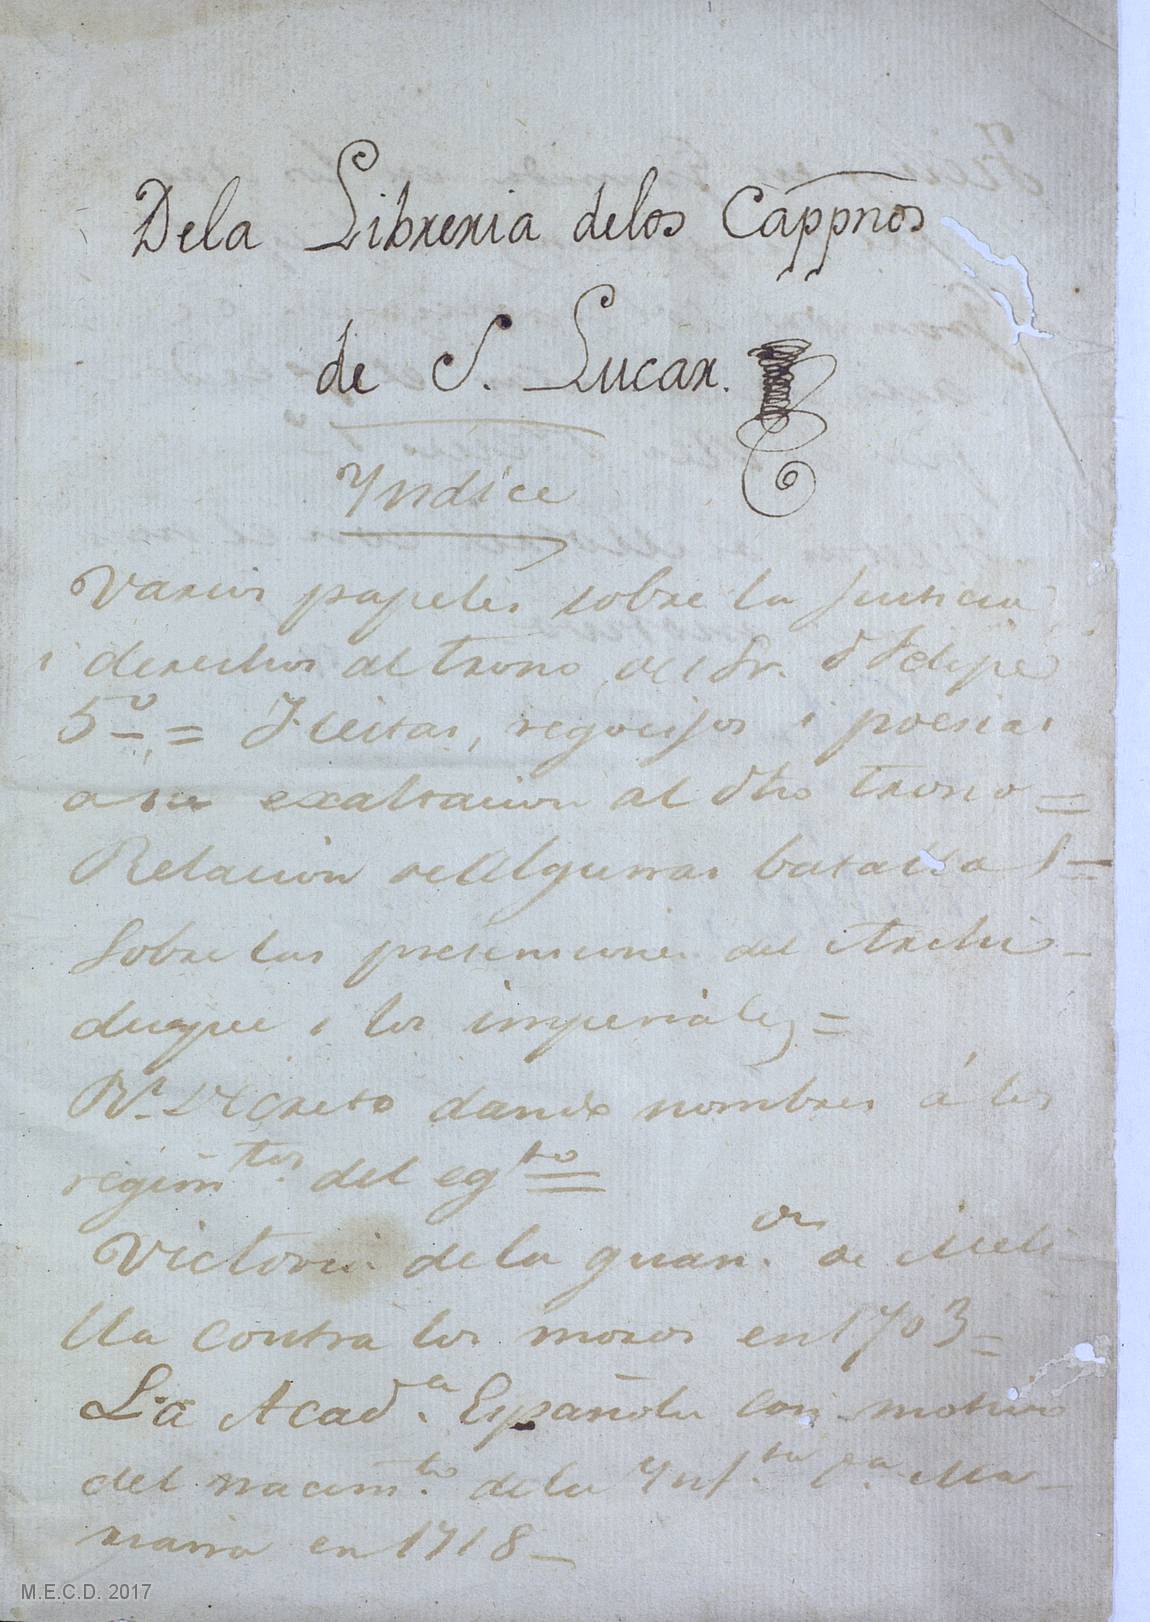 Dela Libreria delos Cappnos
de S. Lucar.
Yndice
Varios papeles sobre la Justicia
i derechos al trono del Sr. d Felipe
5º = Fiestas, regocijos i poesias
a su exaltacion al dho trono =
Relacion de Algunas batallas =
Sobre las pretensiones del Archi-
duque i los imperiales =
Rl Decreto dando nombres á los
regimtos. del egto =
Victoria de la guaron. de Meli-
lla contra los moros en 1703 =
La Acada. Española con motivo
del nacimto. de la Ynfta Da. Ma-
riana en 1718 -
M.E.C.D. 2017